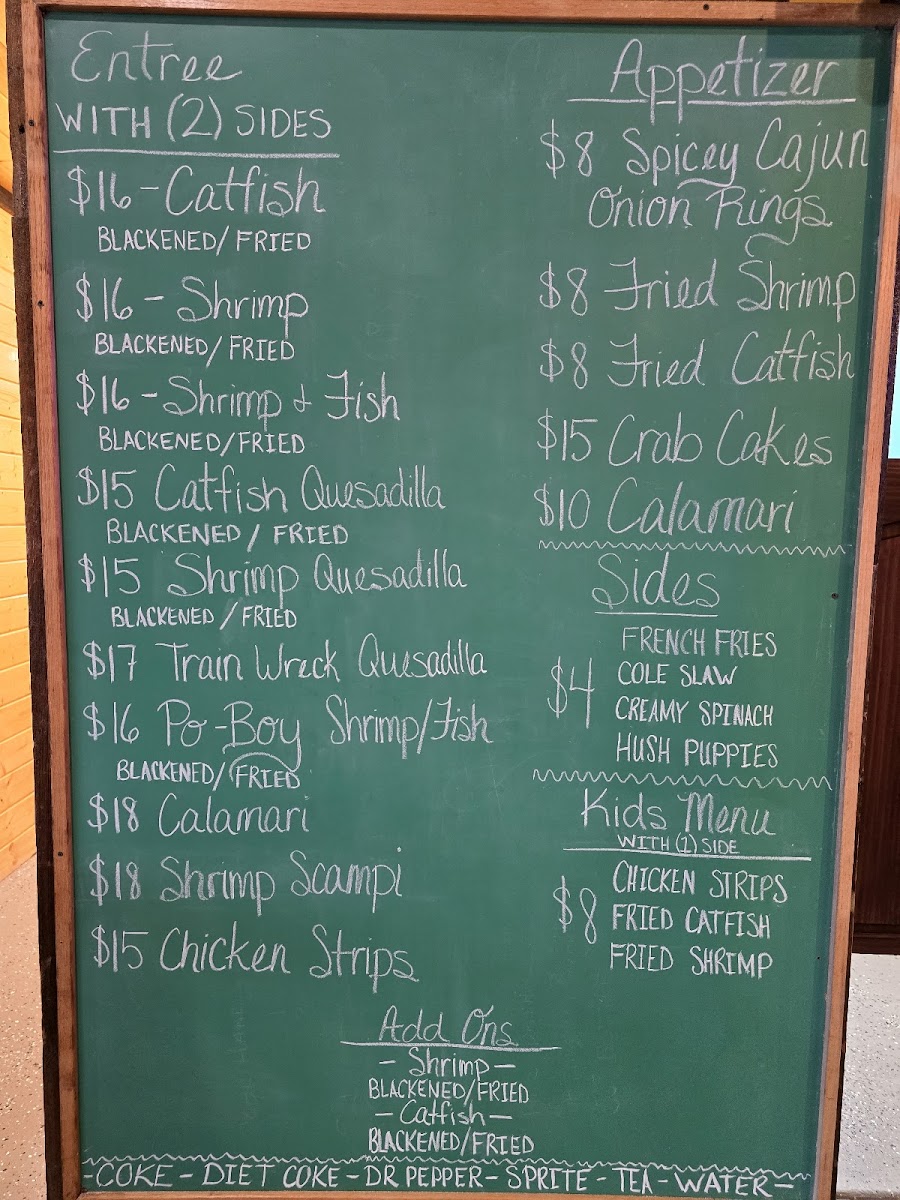 Entree
WITH (2) SIDES
$16 - Catfish
BLACKENED/FRIED
$16 - Shrimp
BLACKENED/FRIED
$16 - Shrimp & Fish
BLACKENED/FRIED
$15 Catfish Quesadilla
BLACKENED / FRIED
$15 Shrimp Quesadilla
BLACKENED / FRIED
$17 Train Wreck Quesadilla
$16 Po-Boy Shrimp/Fish
BLACKENED/FRIED
$18 Calamari
$18 Shrimp Scampi
$15 Chicken Strips
Appetizer
$8 Spicey Cajun
Onion Rings
$8 Fried Shrimp
$8 Fried Catfish
$15 Crab Cakes
$10 Calamari
Sides
$4
FRENCH FRIES
COLE SLAW
CREAMY SPINACH
HUSH PUPPIES
Kids Menu
WITH (1) SIDE
$8
CHICKEN STRIPS
FRIED CATFISH
FRIED SHRIMP
Add Ons
- Shrimp -
BLACKENED/FRIED
- Catfish -
BLACKENED/FRIED
-COKE - DIET COKE - DR PEPPER - SPRITE - TEA - WATER -